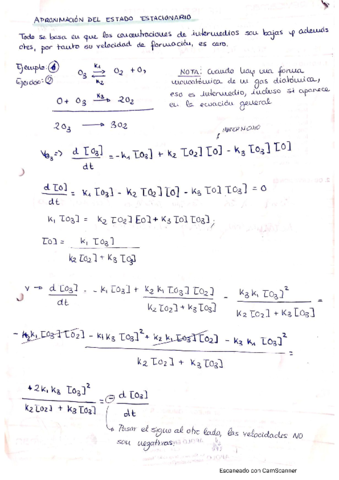 APROXIMACIÓN DEL ESTADO ESTACIONARIO
Todo se basa en que las concentraciones de intermedios son bajas y además
ctes, por tanto su velocidad de formación, es cero.
Ejemplo ①
Ejercicio ②
O₃ ⇌ O₂ + O,
k₁
k₂
O + O₃ →k₃ 2O₂
2O₃ → 3O₂
NOTA: Cuando hay una forma
monoatómica de un gas diatómico,
eso es intermedio, incluso si aparece
en la ecuación general
V₀₃ => d[O₃]/dt = -k₁[O₃] + k₂[O₂][O] - k₃[O₃][O]
d[O]/dt = k₁[O₃] - k₂[O₂][O] - k₃[O][O₃] = 0
k₁[O₃] = k₂[O₂][O] + k₃[O][O₃];
[O] = k₁[O₃] / k₂[O₂] + k₃[O₃]
v → d[O₃]/dt = -k₁[O₃] + k₂k₁[O₃][O₂] / k₂[O₂] + k₃[O₃] - k₃k₁[O₃]² / k₂[O₂] + k₃[O₃] =
- k₂k₁[O₃][O₂] - k₁k₃[O₃]² + k₂k₁[O₃][O₂] - k₃k₁[O₃]² / k₂[O₂] + k₃[O₃] =
+2k₁k₃[O₃]² / k₂[O₂] + k₃[O₃] = ⊖ d[O₃]/dt
↳ Pasar el signo al otro lado, las velocidades NO
son negativas
Escaneado con CamScanner